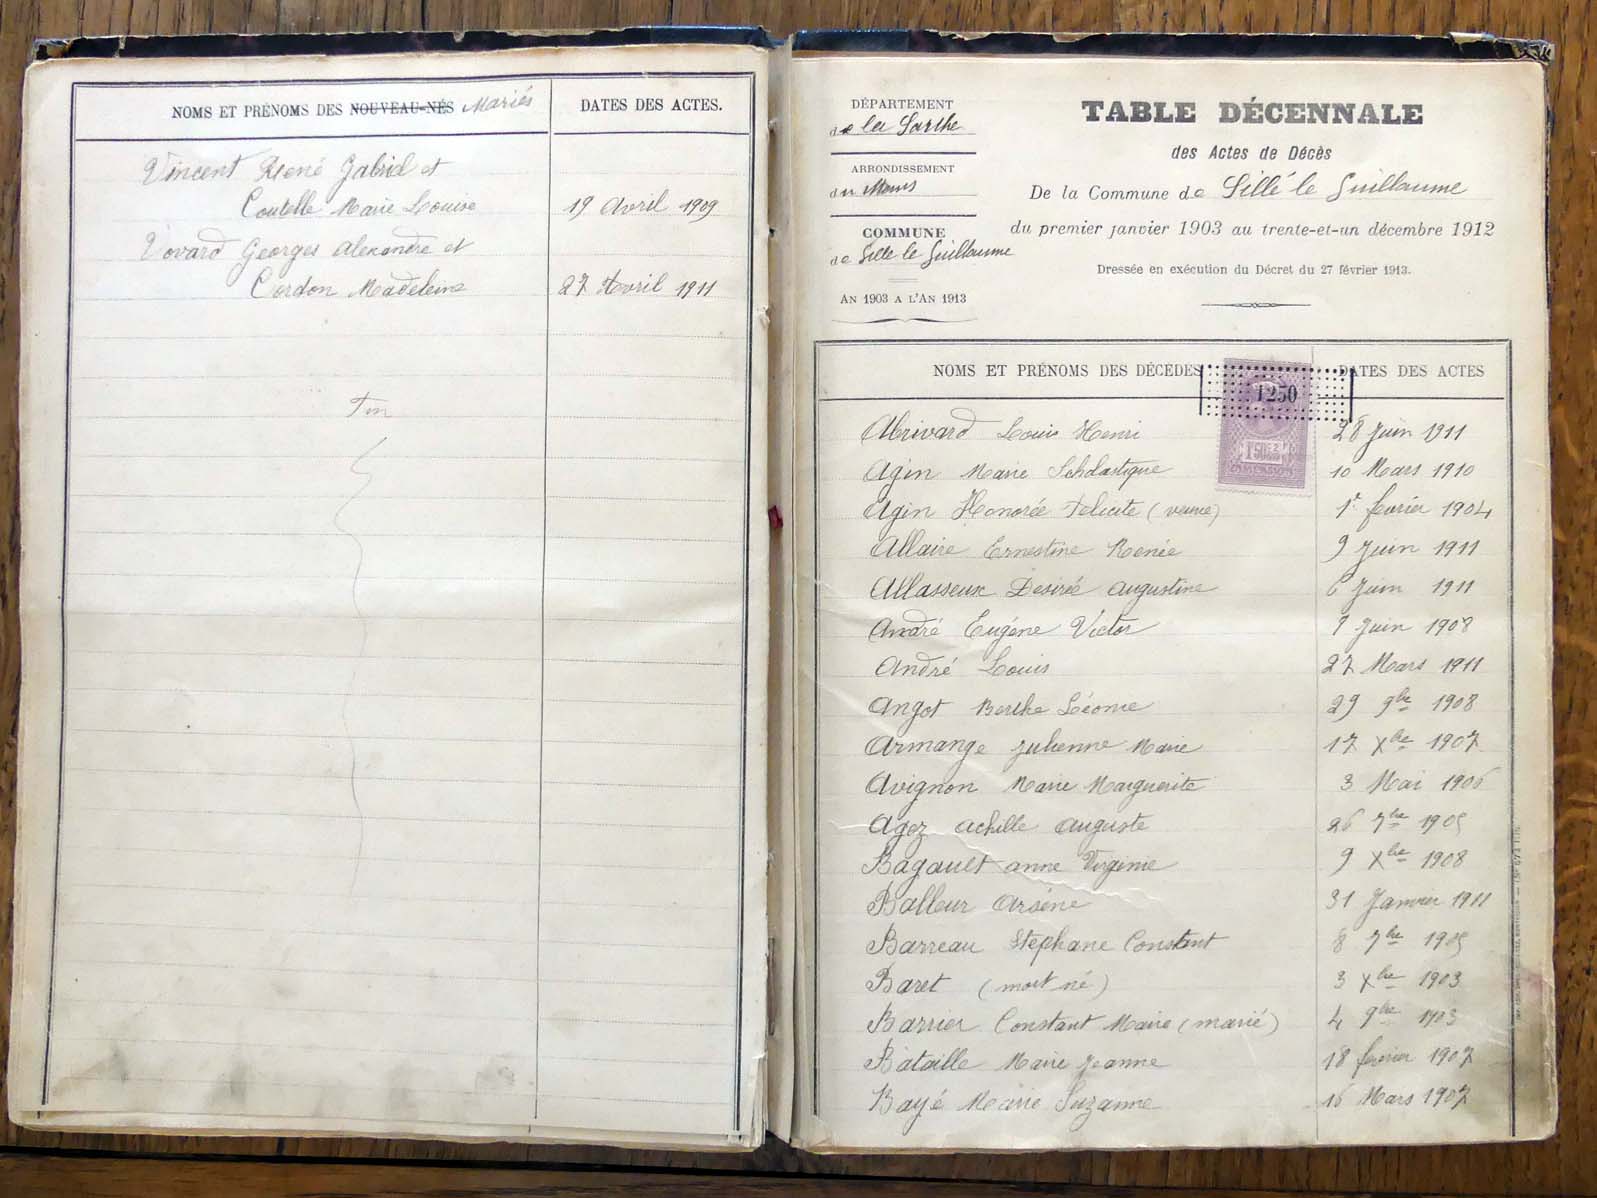 NOMS ET PRÉNOMS DES NOUVEAU-NÉS Mariés
DATES DES ACTES.
Vincent René Gabriel et
Coutelle Marie Louise 19 Avril 1909
Vovard Georges Alexandre et
Cordon Madeleine 27 Avril 1911
Fin
DÉPARTEMENT
de la Sarthe
ARRONDISSEMENT
du Mans
COMMUNE
de Sillé le Guillaume
AN 1903 A L'AN 1913
TABLE DÉCENNALE
des Actes de Décès
De la Commune de Sillé le Guillaume
du premier janvier 1903 au trente-et-un décembre 1912
Dressée en exécution du Décret du 27 février 1913.
NOMS ET PRÉNOMS DES DÉCÉDÉS
DATES DES ACTES
1250
Abrivard Louis Henri 28 Juin 1911
Agin Marie Scholastique 10 Mars 1910
Agin Honorée Félicité (veuve) 1r février 1904
Allaire Ernestine Renée 9 Juin 1911
Allasseux Desiré Augustine 6 Juin 1911
André Eugène Victor 9 Juin 1908
André Louis 27 Mars 1911
Angot Berthe Léonie 29 9bre 1908
Armange Julienne Marie 17 Xbre 1907
Avignon Marie Marguerite 3 Mai 1906
Agez Achille Auguste 26 7bre 1905
Bagault Anne Virginie 9 Xbre 1908
Balleur Arsène 31 Janvier 1911
Barreau Stéphane Constant 8 7bre 1905
Baret (mort né) 3 Xbre 1903
Barrier Constant Marie (marié) 4 9bre 1903
Bataille Marie Jeanne 18 fevrier 1907
Bayé Marie Suzanne 16 Mars 1907